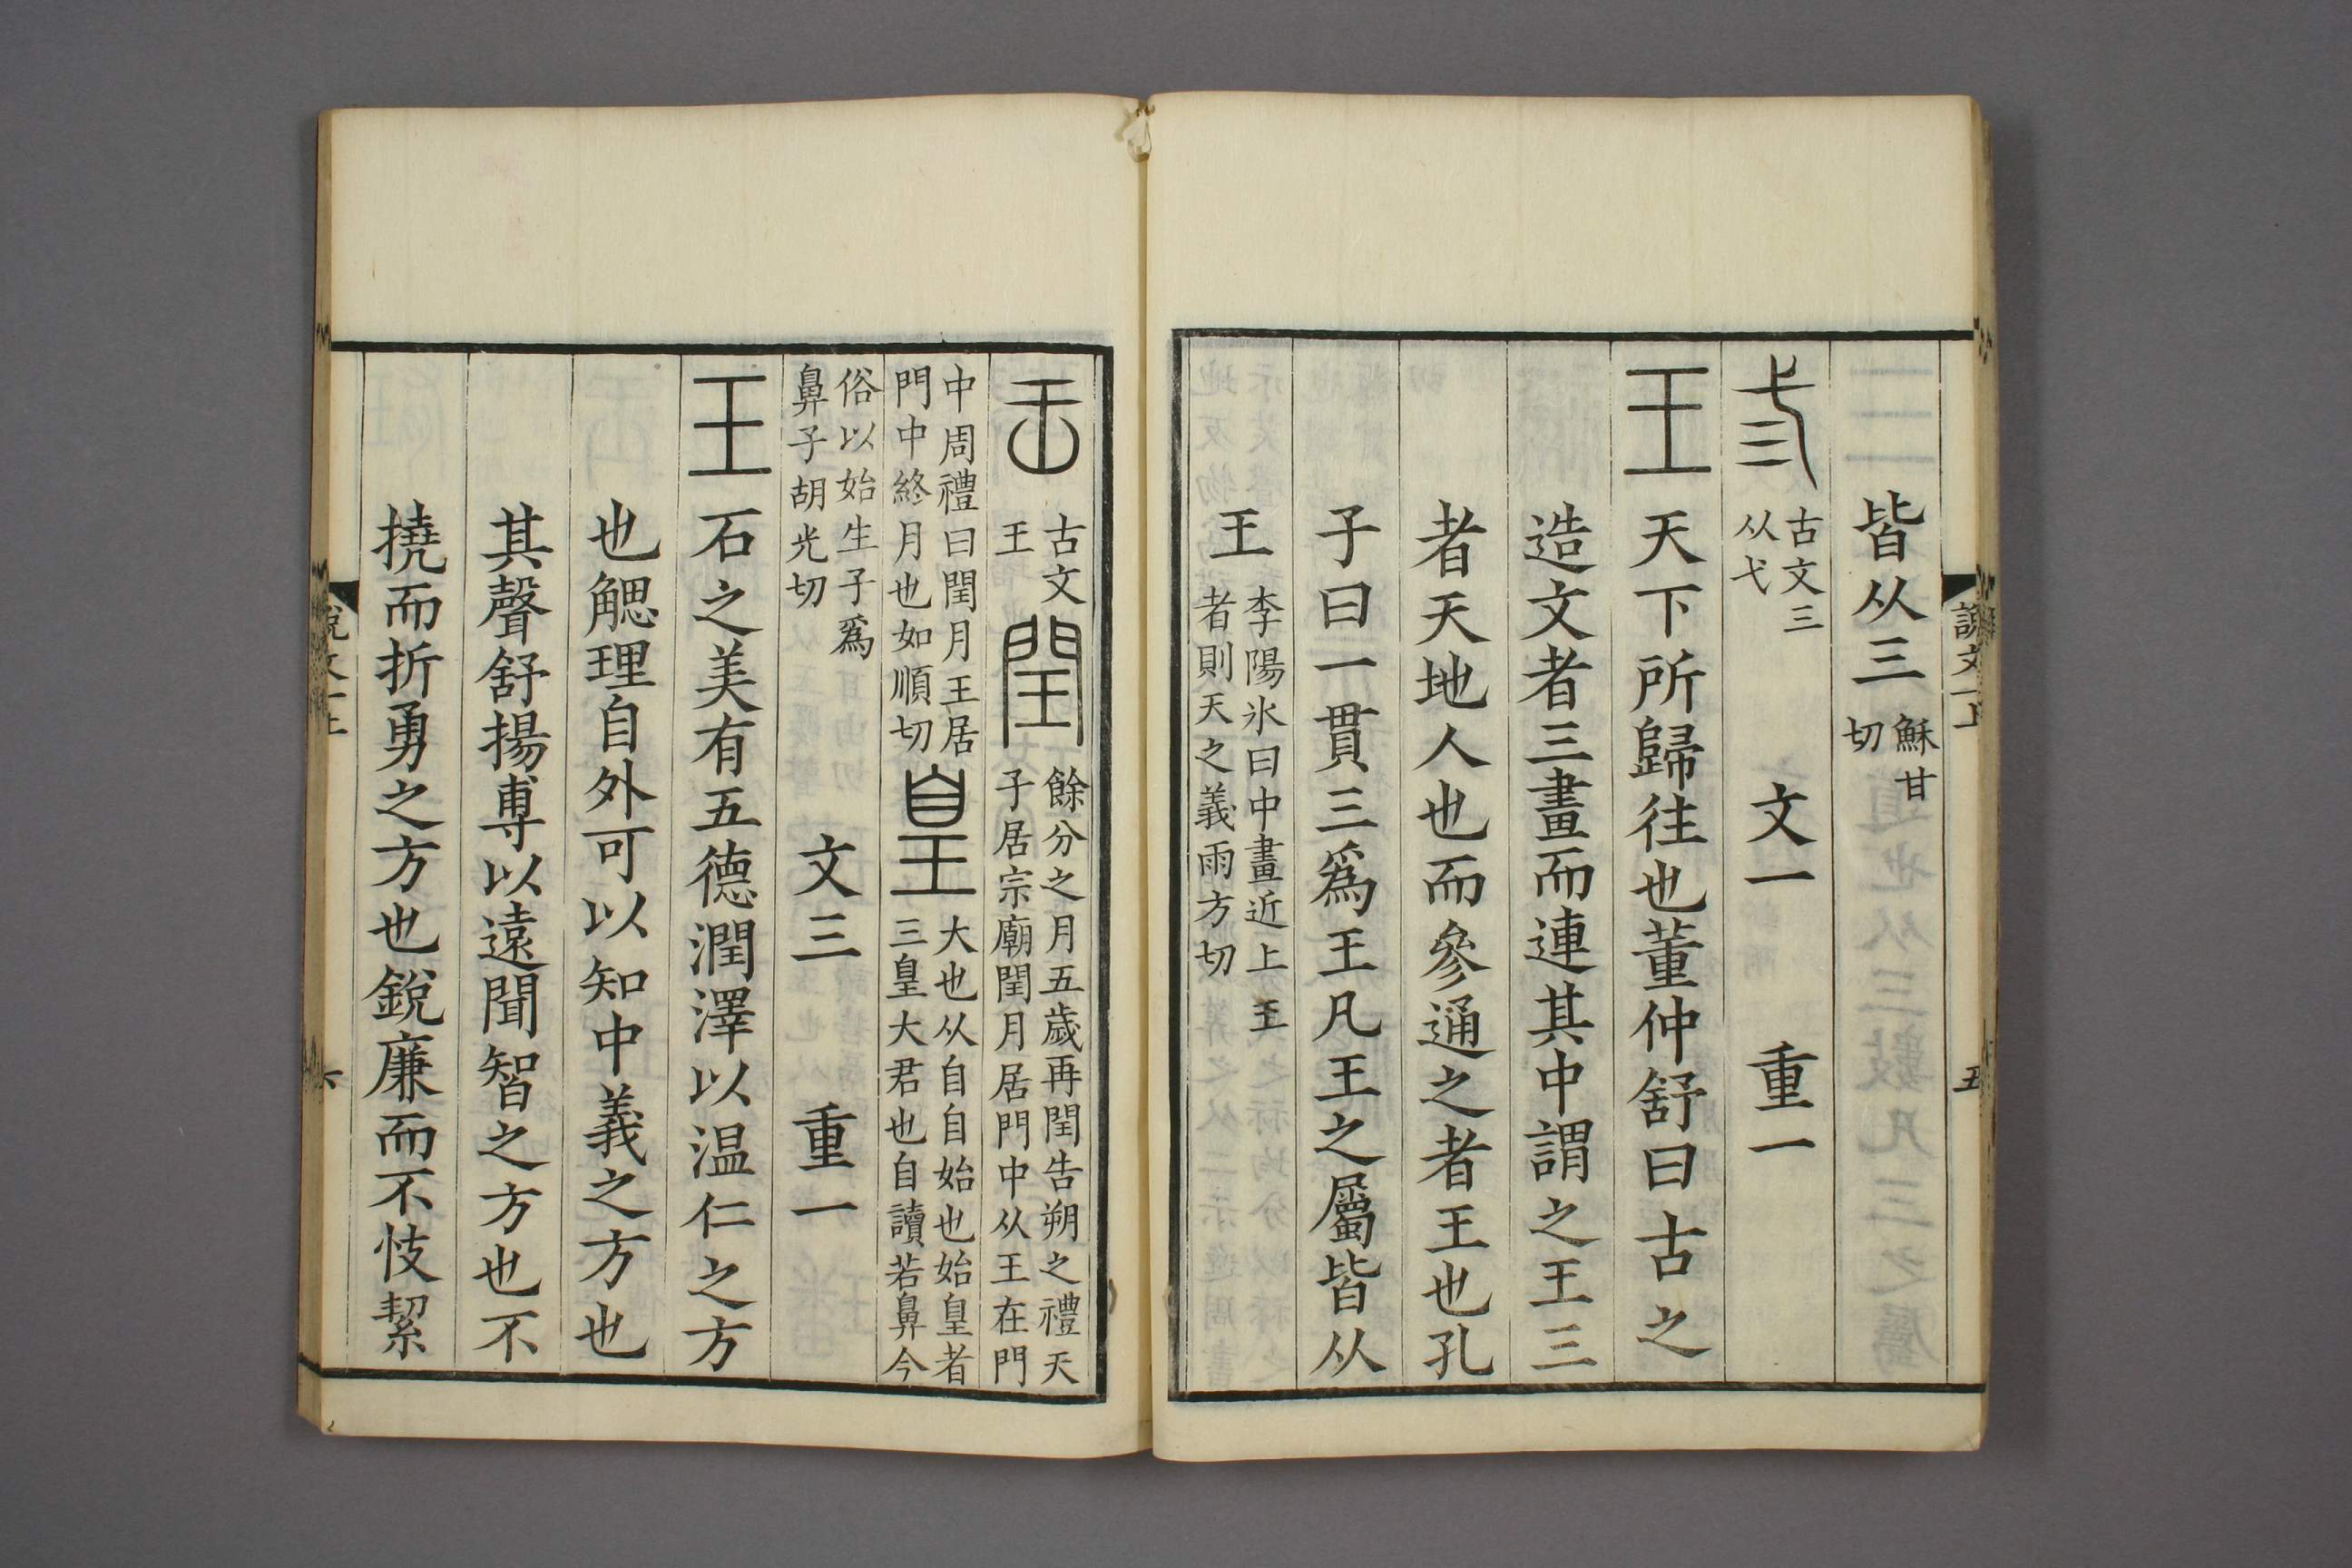 說文一上
五
皆从三穌甘切
弎古文三从弋 文一 重一
王天下所歸往也董仲舒曰古之
造文者三畫而連其中謂之王三
者天地人也而參通之者王也孔
子曰一貫三爲王凡王之屬皆从
王李陽冰曰中畫近上王者則天之義雨方切
古文王 閏餘分之月五歲再閏告朔之禮天子居宗廟閏月居門中从王在門
中周禮曰閏月王居門中終月也如順切 皇大也从自自始也始皇者三皇大君也自讀若鼻今
俗以始生子爲鼻子胡光切 文三 重一
王石之美有五德潤澤以温仁之方
也䚡理自外可以知中義之方也
其聲舒揚尃以遠聞智之方也不
撓而折勇之方也銳廉而不忮絜
說文一上
六